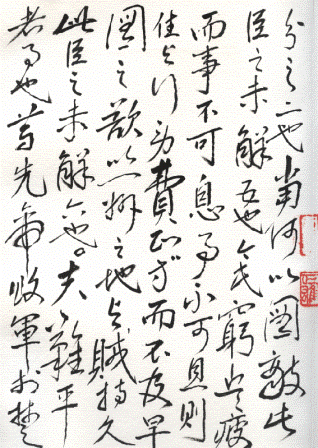 分之二也當何以圖敵此
臣之未解五也今民窮兵疲
而事不可息事不可息則
住与行勞費正等而不及早
圖之欲以一州之地与賊持久
此臣之未解六也夫難平
者事也昔先帝敗軍於楚